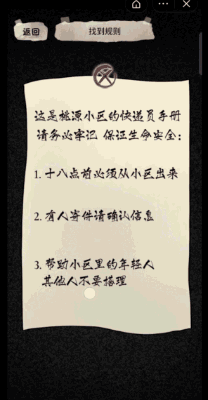 返回
找到规则
这是桃源小区的快递员手册
请务必牢记 保证生命安全:
1. 十八点前必须从小区出来
2. 有人寄件请确认信息
3. 帮助小区里的年轻人
其他人不要搭理